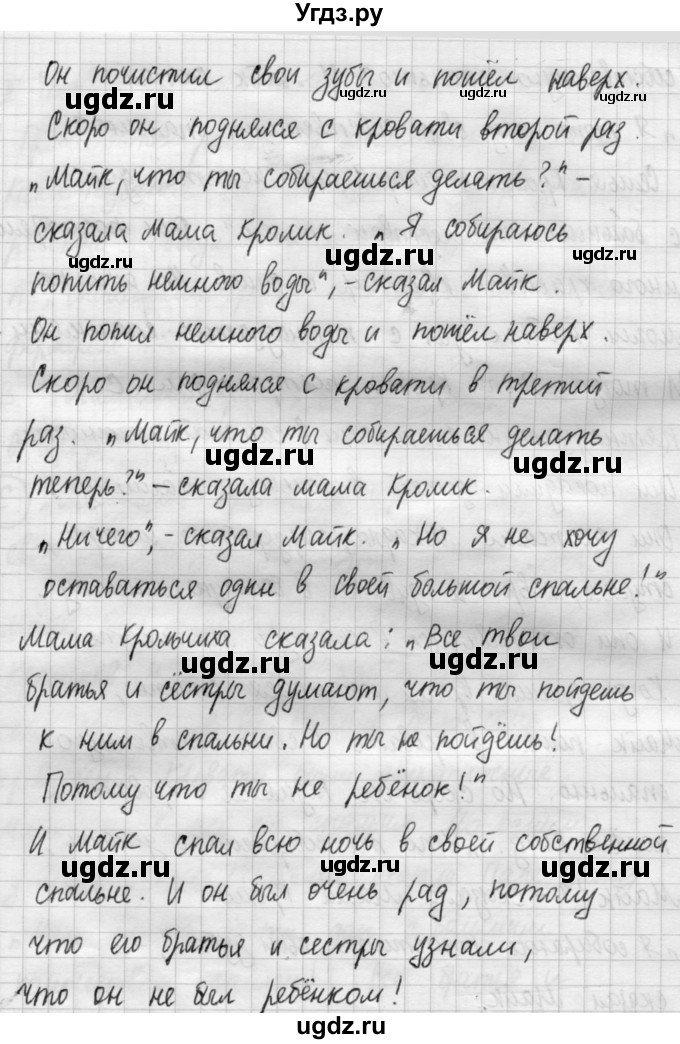 Угдз.ру
Он почистил свои зубы и пошёл наверх.
ugdz.ru ugdz.ru ugdz.ru
Скоро он поднялся с кровати второй раз.
„Майк, что ты собираешься делать?" –
сказала Мама Кролик. „Я собираюсь
ugdz.ru ugdz.ru ugdz.ru
попить немного воды", – сказал Майк.
Он попил немного воды и пошёл наверх.
Скоро он поднялся с кровати в третий
раз. „Майк, что ты собираешься делать
ugdz.ru ugdz.ru
теперь?" – сказала мама Кролик.
„Ничего", – сказал Майк. „Но я не хочу
оставаться один в своей большой спальне!"
Мама Крольчиха сказала: „Все твои
ugdz.ru ugdz.ru
братья и сёстры думают, что ты пойдешь
к ним в спальни. Но ты не пойдёшь!
Потому что ты не ребёнок!"
И Майк спал всю ночь в своей собственной
ugdz.ru ugdz.ru ugdz.ru
спальне. И он был очень рад, потому
что его братья и сестры узнали,
что он не был ребёнком!
ugdz.ru